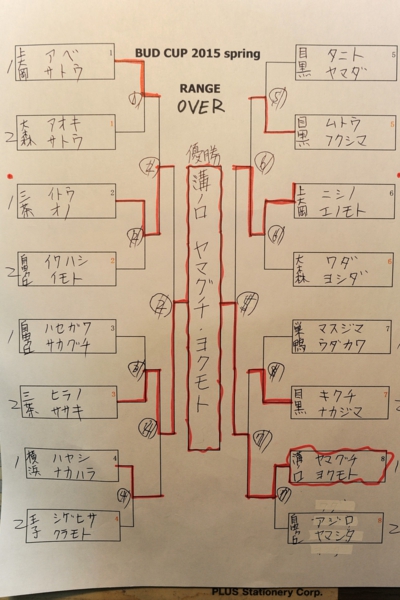 BUD CUP 2015 spring
RANGE
OVER
優勝
溝ノ口 ヤマグチ・ヨクモト
1 上大岡 アベ サトウ 1
2 大森 アオキ サトウ 1
1 三茶 イトウ オノ 2
2 自由ヶ丘 イワハシ イモト 2
1 自由ヶ丘 ハセガワ サカグチ 3
2 三茶 ヒラノ ササキ 3
1 横浜 ハヤシ ナカハラ 4
2 王子 シゲヒサ クラモト 4
目黒 タニト ヤマダ 5
目黒 ムトウ フクシマ 5
上大岡 ニシノ エノモト 6
大森 ワダ ヨシダ 6
巣鴨 マスジマ ウダカワ 7
目黒 キクチ ナカジマ 7
溝ノ口 ヤマグチ ヨクモト 8
自由ヶ丘 アジロ ヤマシタ 8
PLUS Stationery Corp.